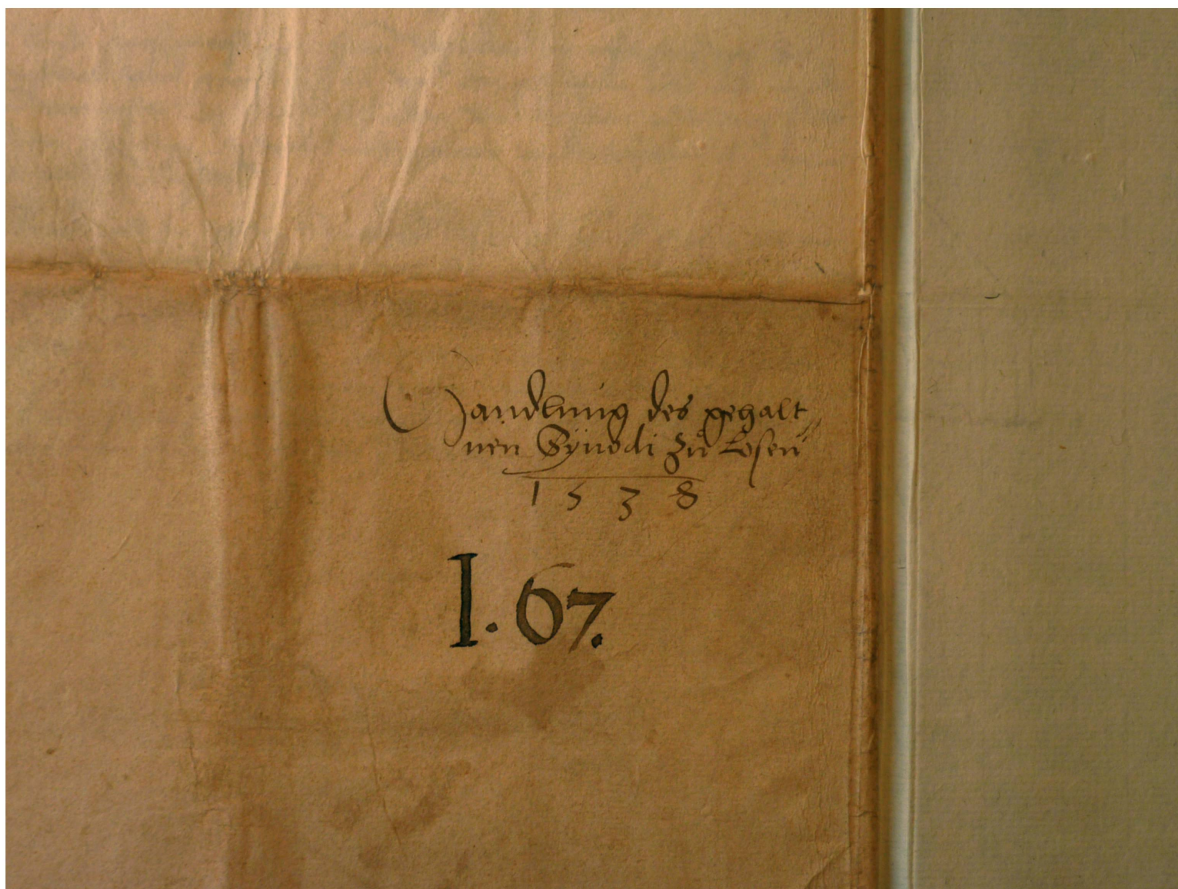 Handlung des gehalt
nen Synodi zů Losen
1538
I. 67.